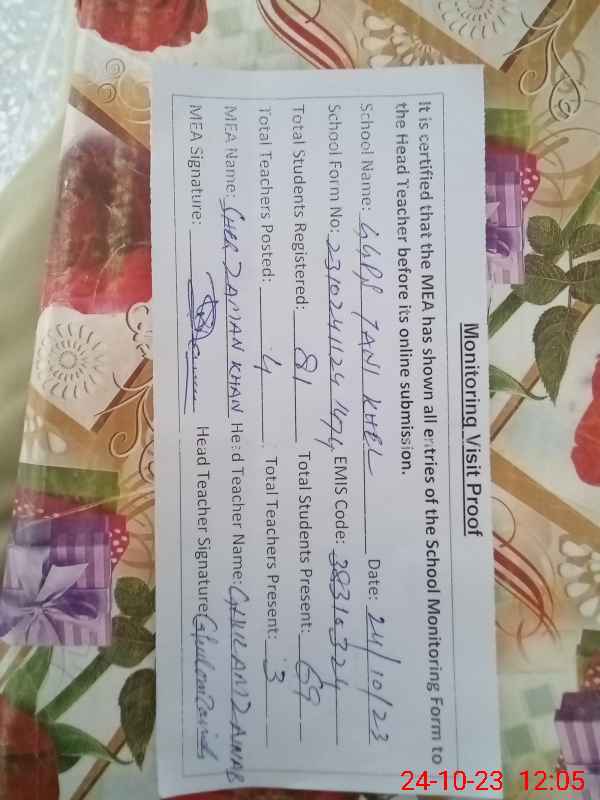 Monitoring Visit Proof
It is certified that the MEA has shown all entries of the School Monitoring Form to
the Head Teacher before its online submission.
School Name: GGPS TANI KHEL Date: 24/10/23
School Form No: EMIS Code:
Total Students Registered: 81 Total Students Present: 69
Total Teachers Posted: 4 Total Teachers Present: 3
MEA Name: SHER ZAMAN KHAN Head Teacher Name:
MEA Signature: Head Teacher Signature
24-10-23 12:05